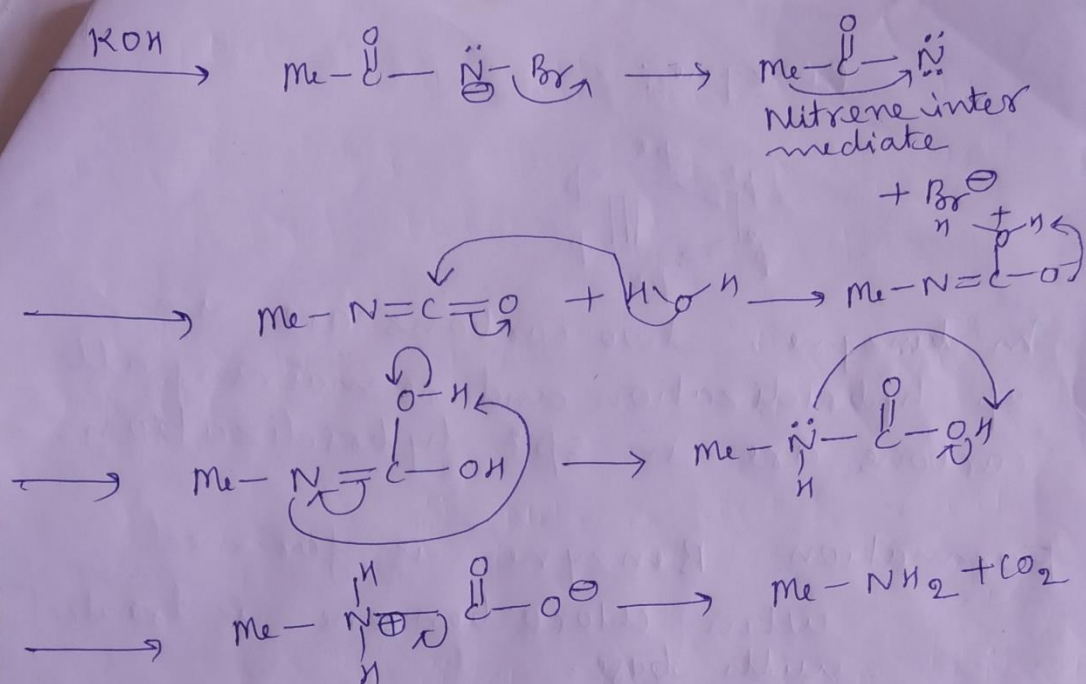 KOH
Me-C(=O)-N̈⊖-Br → Me-C(=O)-N̈:
Nitrene inter
mediate
+ Br⊖
Me-N=C=O + H-O-H → Me-N=C(-O⁺(H)-H)-O
Me-N=C(-O-H)-OH → Me-N̈(H)-C(=O)-OH
Me-N⊕(H)(H)-C(=O)-O⊖ → Me-NH₂ + CO₂